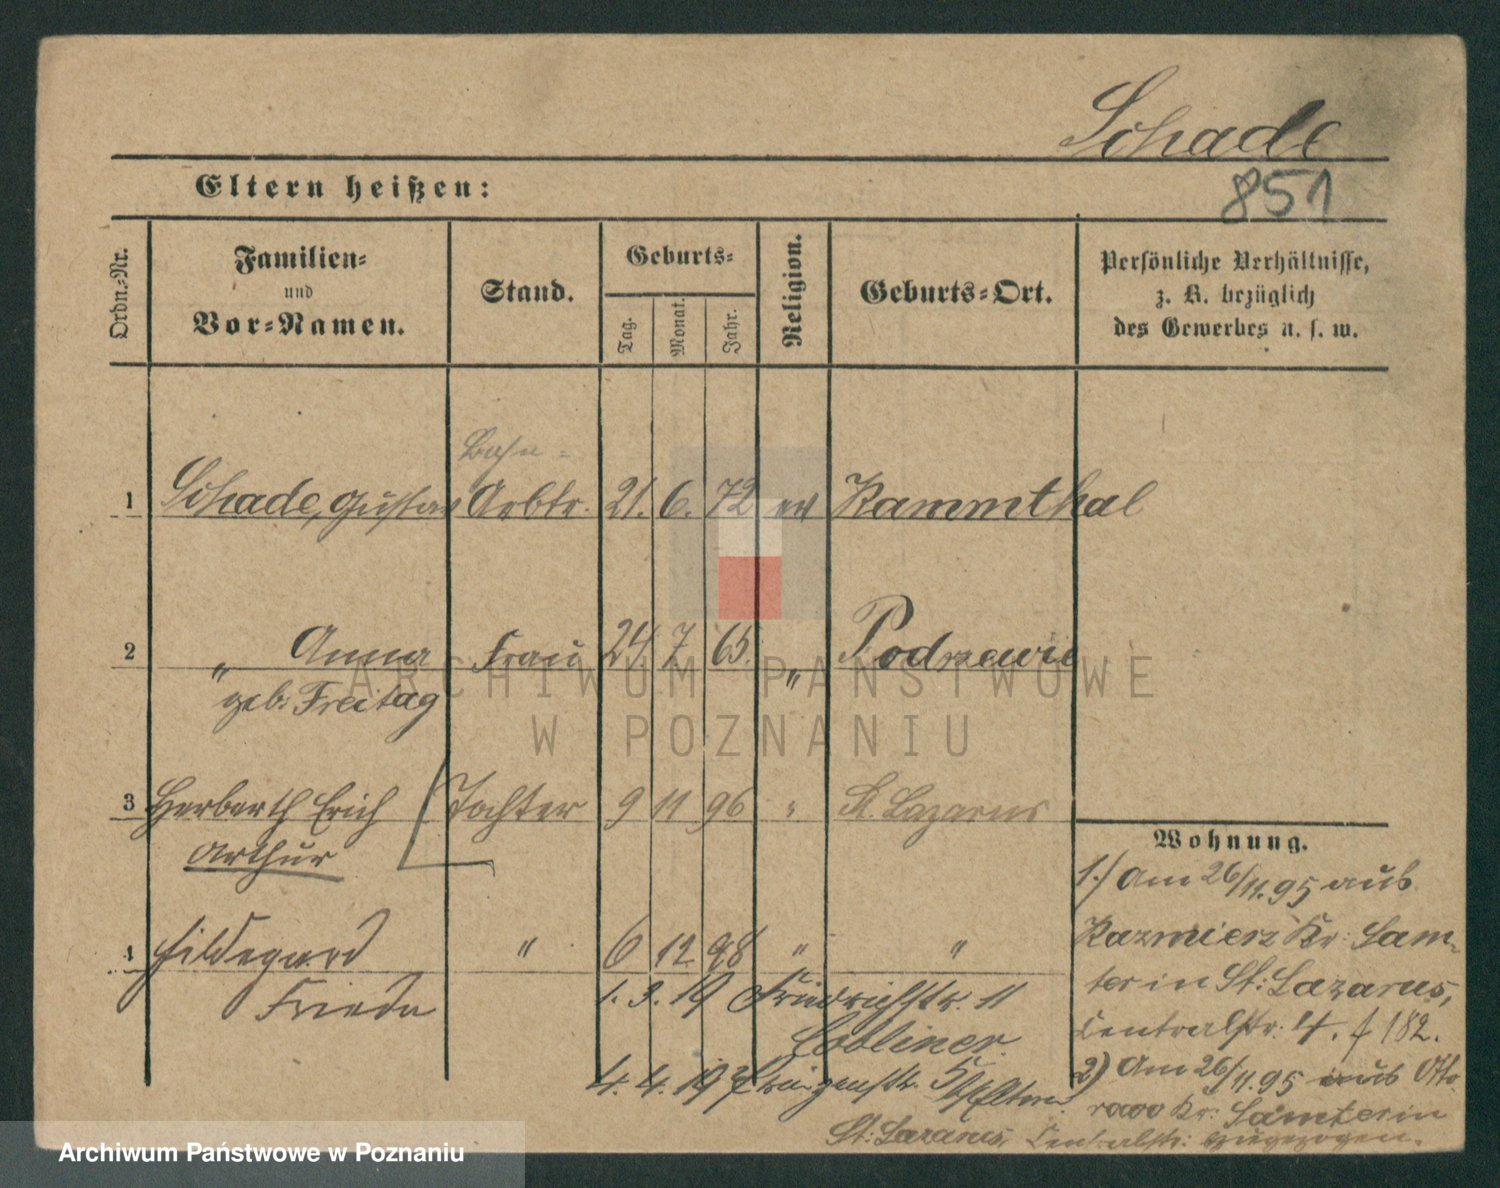 Schade
851
Eltern heißen:
Ordn.-Nr.
Familien-
und
Vor-Namen.
Stand.
Geburts-
Tag.
Monat.
Jahr.
Religion.
Geburts-Ort.
Persönliche Verhältnisse,
z. B. bezüglich
des Gewerbes u. s. w.
Bahn-
1 Schade, Gustav Arbtr. 21. 6. 72 ev Kammthal
2 " Anna Frau 24 7 65. " Podrzewie
geb. Freitag
3 Herbarth Erich Tochter 9 11 96 " St. Lazarus
Arthur
4 Hildegard " 6 12 98 " "
Frieda
1. 3. 19 Friedrichstr. 11
4. 4. 19
Wohnung.
1.) Am 26/11.95 aus
Kazmierz Kr. Sam-
ter in St. Lazarus,
Centralstr. 4. f 182.
2) Am 26/11.95 aus Otto
rowo Kr. Samter in
St. Lazarus, Centralstr. zugezogen.
ARCHIWUM PAŃSTWOWE
W POZNANIU
Archiwum Państwowe w Poznaniu